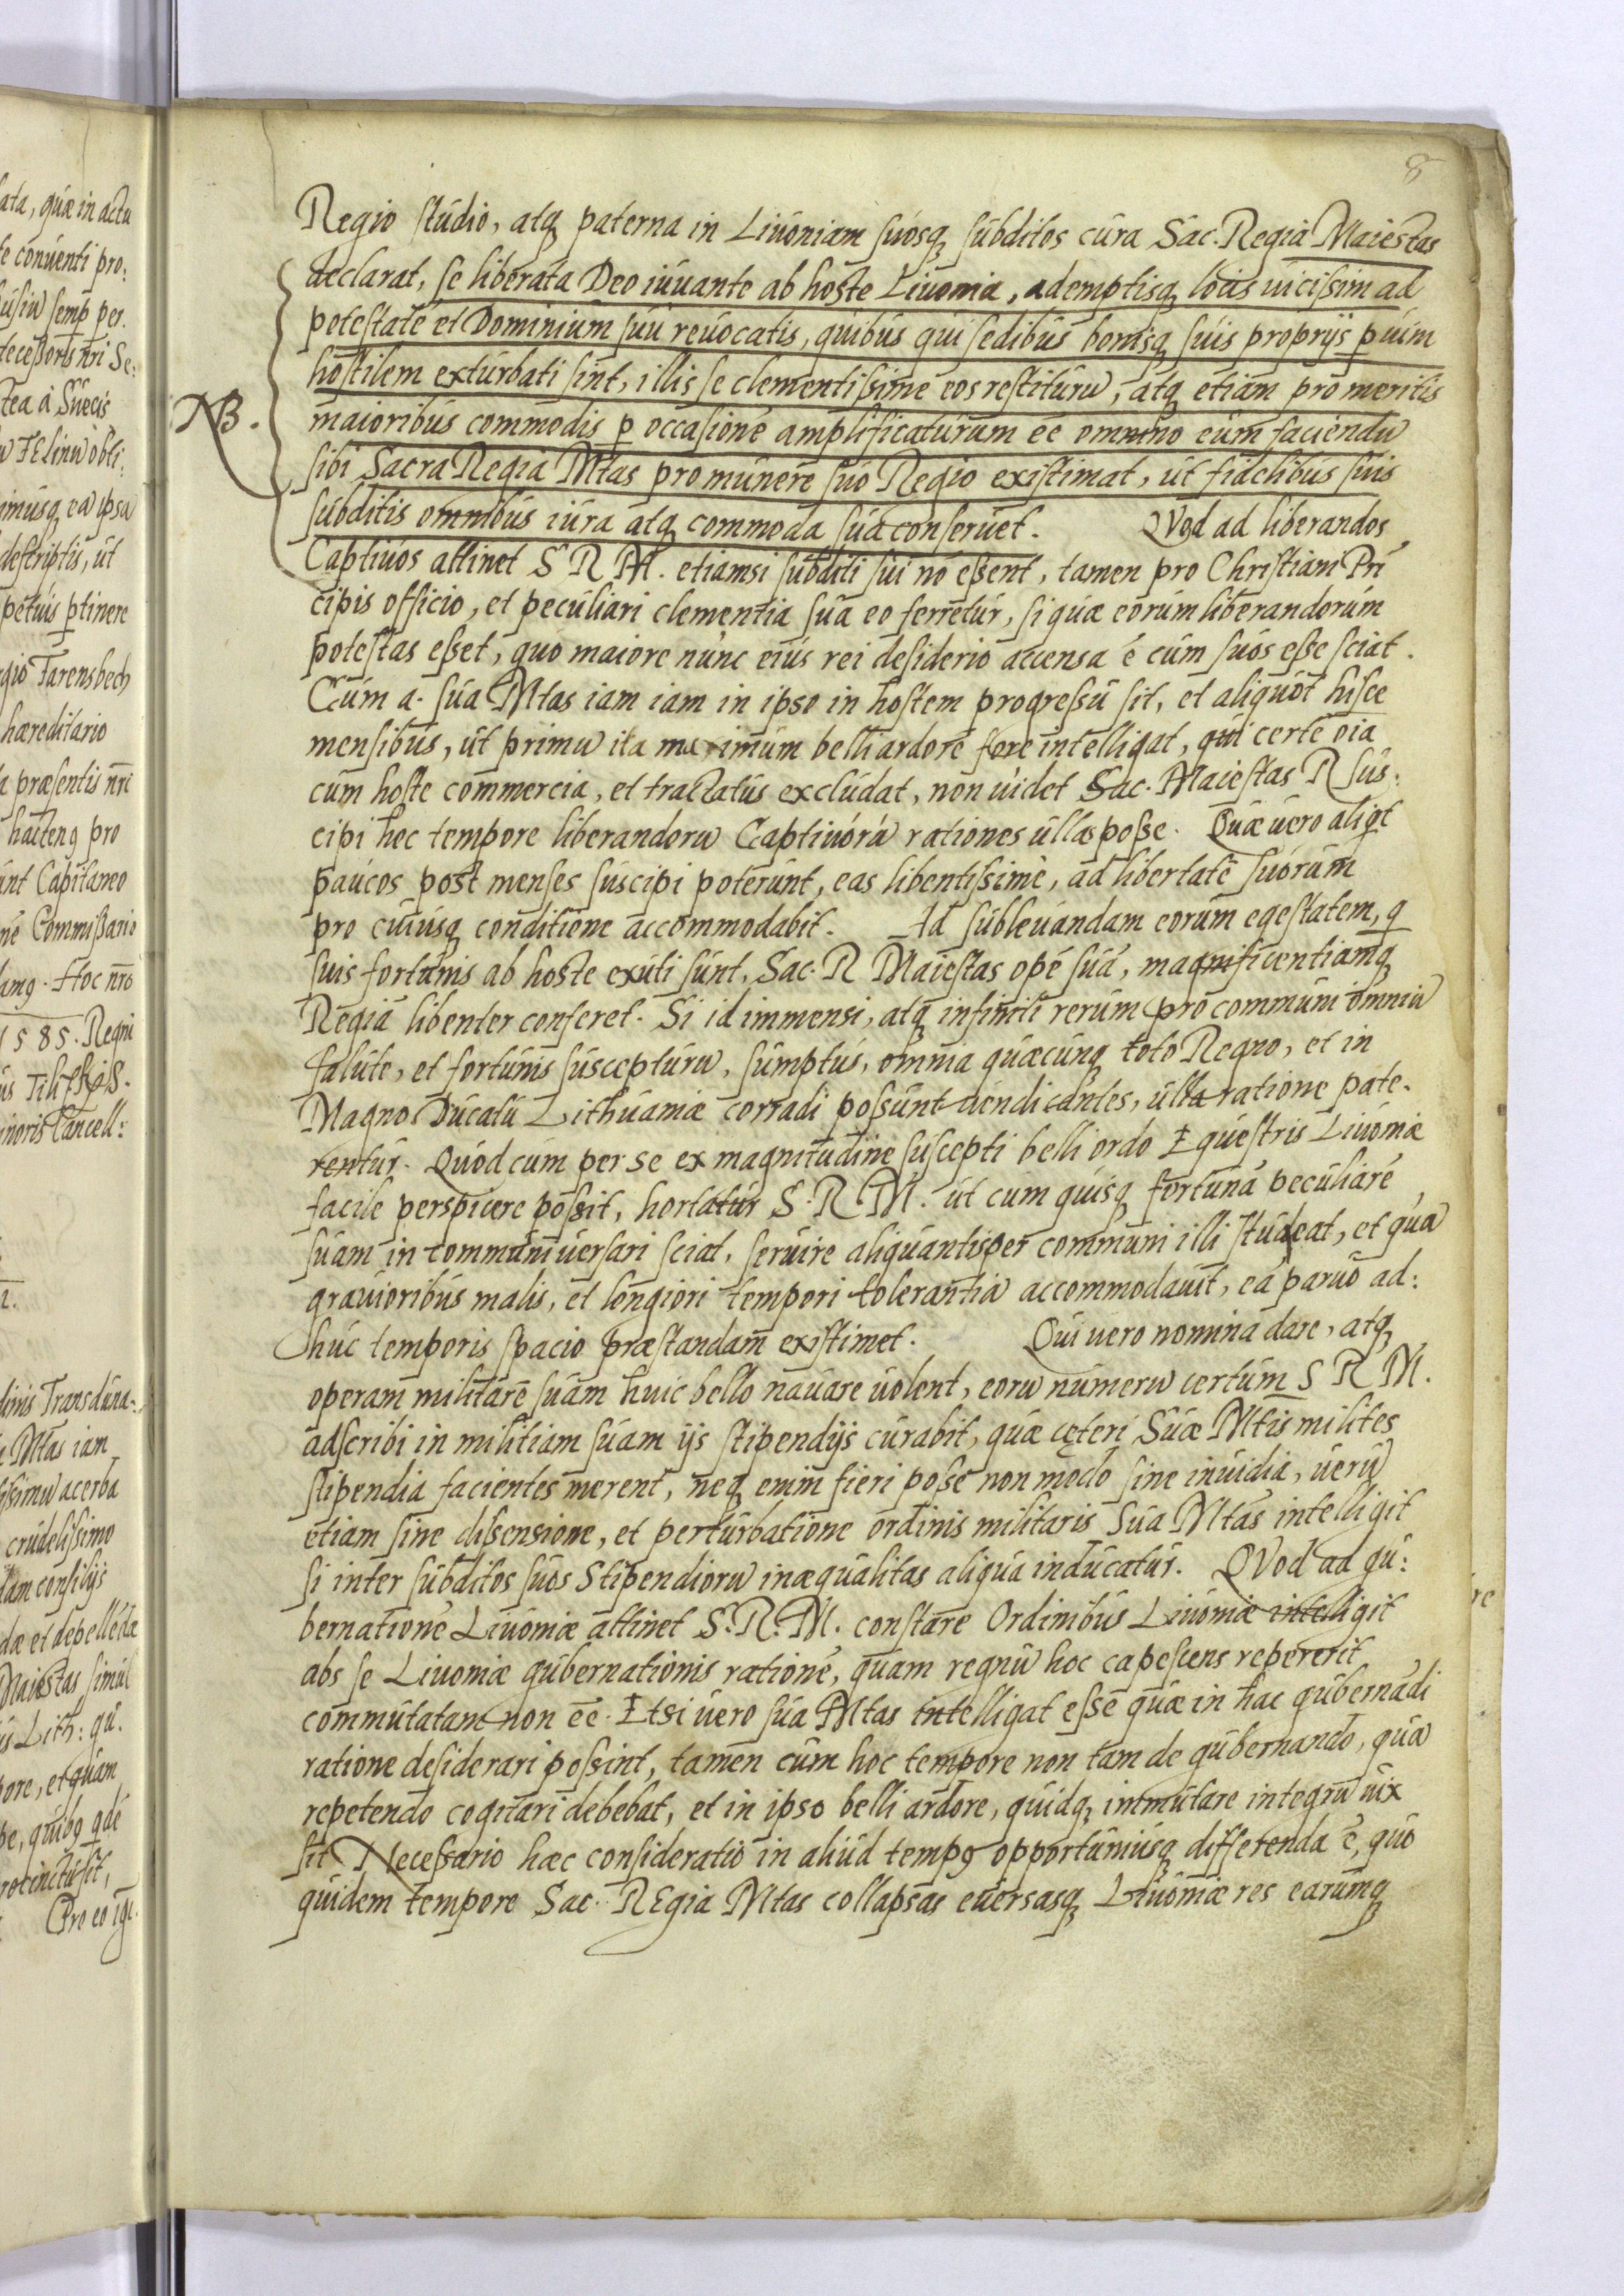 8
Regio studio, atq₃ paterna in Liuoniam suosq₃ subditos cura Sac. Regia Maiestas
declarat, se liberata Deo iuuante ab hoste Liuonia, ademptisq₃ locis uicissim ad
potestatē et Dominium suū reuocatis, quibus qui sedibus bonisq₃ suis proprijs p uim
hostilem exturbati sint, illis se clementissime eos restiturū, atq₃ etiam pro meritis
NB.
maioribus commodis p occasionē amplificaturum eē omnino eum faciendū
sibi Sacra Regia Mtas pro munere suo Regio existimat, ut fidelibus suis
subditis omnibus iura atq₃ commoda sua conseruet. QVod ad liberandos
Captiuos attinet S R M. etiamsi subditi sui nō essent, tamen pro Christiani Prī
cipis officio, et peculiari clementia sua eo ferretur, si quæ eorum liberandorum
potestas esset, quo maiore nunc eius rei desiderio accensa ē cum suos esse sciat.
Cum a. sua Mtas iam iam in ipso in hostem progressū sit, et aliquot hisce
mensibus, ut primū ita maximum belli ardorē fore intelligat, qui certe oīa
cum hoste commercia, et tractatus excludat, non uidet Sac. Maiestas R sus:
cipi hoc tempore liberandorū Captiuorū rationes ullas posse. Quæ uero aliqt
paucos post menses suscipi poterunt, eas libentissimè, ad libertatē suorum
pro cuiusq₃ conditione accommodabit. Ad subleuandam eorum egestatem, q
suis fortunis ab hoste exuti sunt, Sac. R Maiestas opē suā, magnificentiamq₃
Regiā libenter conferet. Si id immensi, atq₃ infiniti rerum pro communi omniū
salute, et fortunis suscepturū, sumptus, omnia quæcunq₃ toto Regno, et in
Magno Ducatu Lithuaniæ corradi possunt uendicantes, ulla ratione pate-
rentur. Quod cum per se ex magnitudine suscepti belli ordo Equestris Liuoniæ
facile perspicere possit, hortatur S. R M. ut cum quisq₃ fortunā peculiarē
suam in communi uersari sciat, seruire aliquantisper communi illi studeat, et quā
grauioribus malis, et longiori tempori tolerantiā accommodauit, eā paruo ad:
huc temporis spacio præstandam existimet. Qui uero nomina dare, atq₃
operam militarē suam huic bello nauare uolent, eorū numerū certum S R M.
adscribi in militiam suam ijs stipendijs curabit, quæ cęteri Suæ Mtis milites
stipendia facientes merent, neq₃ enim fieri posse non modo sine inuidia, uerū
etiam sine dissensione, et perturbatione ordinis militaris Sua Mtas intelligit
si inter subditos suos Stipendiorū inæqualitas aliqua inducatur. QVod ad gu:
bernationē Liuoniæ attinet S. R. M. constare Ordinibus Liuoniæ intelligit
abs se Liuoniæ gubernationis rationē, quam regnū hoc capescens repererit,
commutatam non eē. Etsi uero sua Mtas intelligat esse quæ in hac gubernādi
ratione desiderari possint, tamen cum hoc tempore non tam de gubernando, quā
repetendo cogitari debebat, et in ipso belli ardore, quidq₃ immutare integrū uix
sit Necessario hæc consideratio in aliud tempꝯ opportuniusq₃ differenda ē, quo
quidem tempore Sac. REgia Mtas collapsas euersasq₃ Liuoniæ res earumq₃